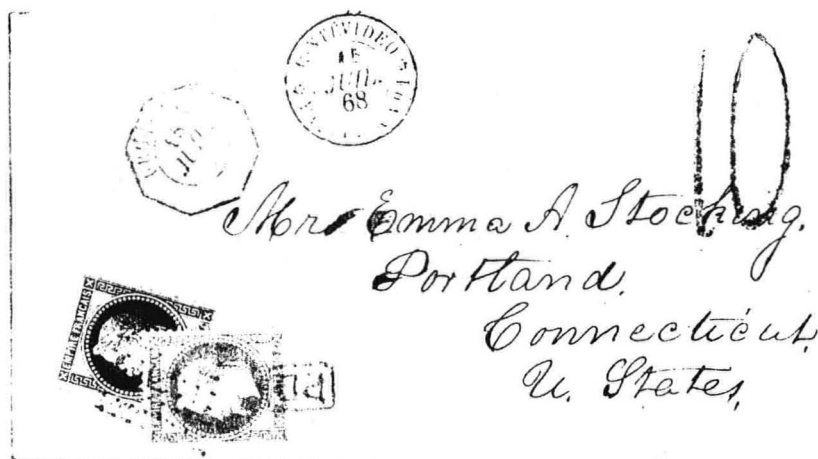 MONTEVIDEO
15
JUIL.
68
10
Mrs Emma A. Stocking.
Portland.
Connecticut,
U. States,
EMPIRE FRANÇAIS